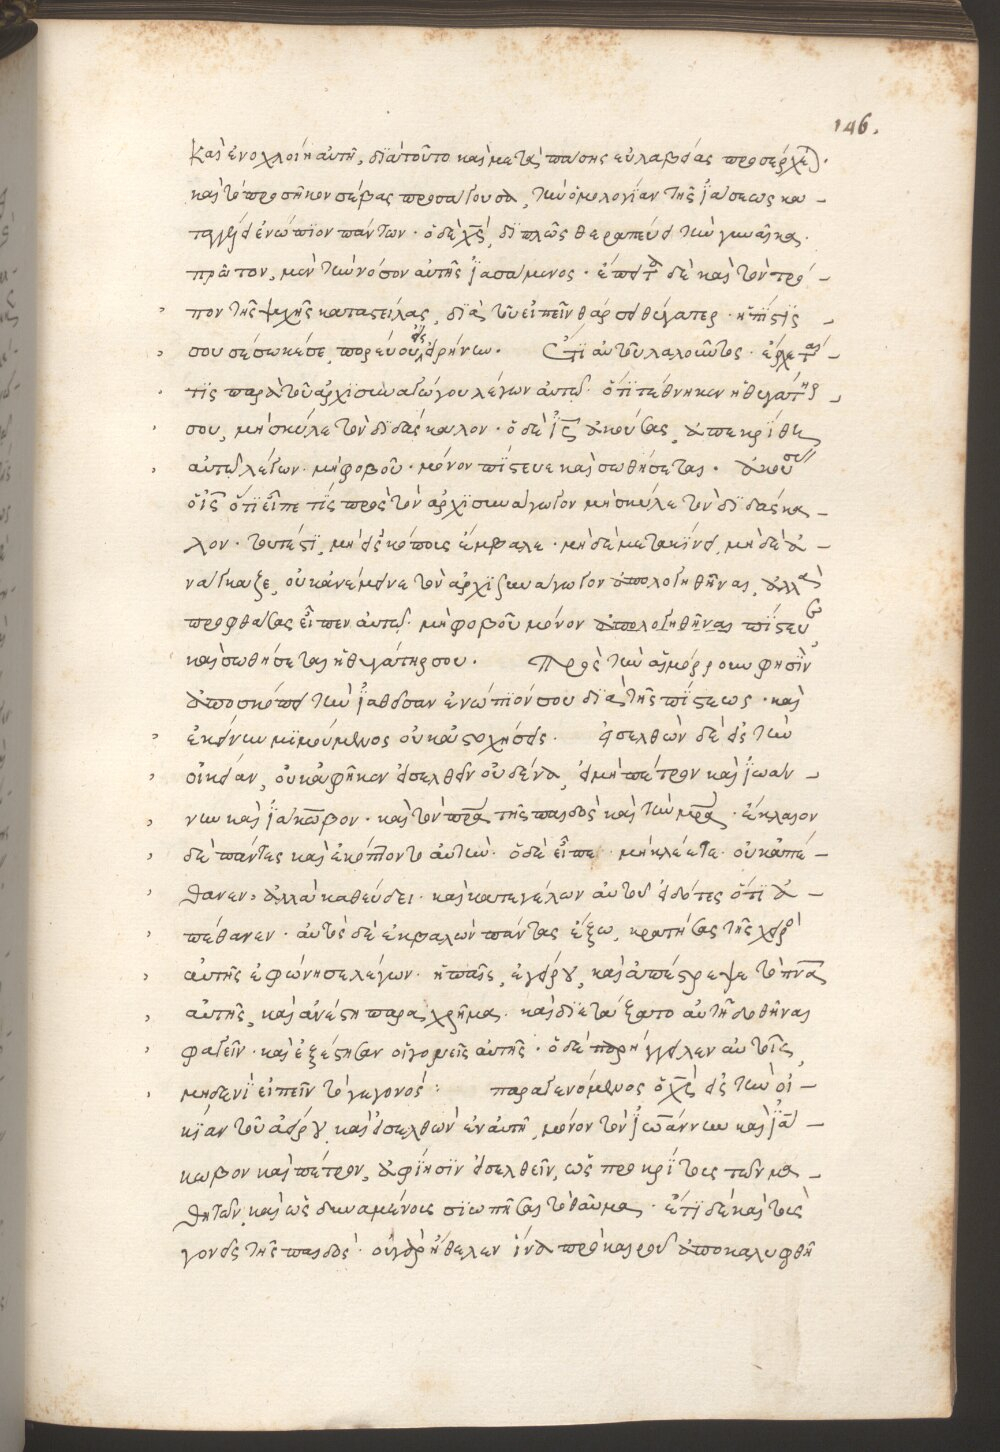 146.
καὶ ἐνοχλοίη αὐτῆ, διὰ τοῦτο καὶ μετὰ πάσης εὐλαβείας προσέρχε).
καὶ τὸ προσῆκον σέβας προσάγουσα, τὴν ὁμολογίαν τῆς ϊάσεως κα –
ταγγέλει ἐνώπϊον πάντων · ὁ δὲ χς̅, διπλῶς θεραπεύει τὴν γυναῖκα ·
πρῶτον, μὲν τὴν νόσον αὐτῆς ϊασάμενος · ἔπειτα δὲ καὶ τὸν τρό –
πον τῆς ψυχῆς καταστείλας, διὰ τοῦ εἰπεῖν θάρσει θύγατερ · ἡ πίστϊς –
σου σέσωκέ σε, πορεύου εἰς εἰρήνην. Ἔτι αὐτοῦ λαλοῦντος · ἔρχεται –
τϊς παρὰ τοῦ ἀρχισυναγώγου λέγων αὐτῶ · ὅτι τέθνηκεν ἡ θυγάτηρ –
σου, μὴ σκύλε τὸν διδάσκαλον · ὁ δὲ ις̅ ἀκούσας, ἀπεκρίθη
αὐτῶ λέγων · μὴ φοβοῦ · μόνον πίστευε καὶ σωθήσεται. ἀκούσας
ὁ ις̅ ὅτι εἶπε τὶς πρὸς τὸν ἀρχισυνάγωγον μὴ σκύλε τὸν διδάσκα –
λον · τουτέστϊ, μὴ εἰς κόποις ἔμβαλε · μὴ δὲ μετακίνει, μὴ δὲ ἀ –
νάγκαζε, οὐκ ἀνέμεινε τὸν ἀρχισυνάγωγον ἀπολογηθῆναι, ἀλλὰ
προφθάσας εἶπεν αὐτῶ · μὴ φοβοῦ μόνον ἀπολογηθῆναι πίστευε
καὶ σωθήσεται ἡ θυγάτηρ σου. Πρὸς τὴν αἱμόρροουν φησὶν
ἀποσκόπει τὴν ϊαθεῖσαν ἐνώπϊόν σου διὰ τῆς πίστεως · καὶ
ἐκείνην μιμούμενος οὐκ ἀστοχήσεις. εἰσελθὼν δὲ εἰς τὴν
οἰκείαν, οὐκ ἀφῆκεν εἰσελθεῖν οὐδένα, εἰμὴ πέτρον καὶ ϊωάν –
νην καὶ ϊάκωβον · καὶ τὸν πρ̅α τῆς παιδὸς καὶ τὴν μρ̅α · ἔκλαιον
δὲ πάντες καὶ ἐκόπτοντο αὐτὴν · ὁ δὲ εἶπε · μὴ κλέετε · οὐκ ἀπέ –
θανεν, ἀλλὰ καθεύδει · καὶ κατεγέλων αὐτοῦ εἰδότες ὅτι ἀ –
πέθανεν · αὐτὸς δὲ ἐκβαλὼν πάντας ἔξω, κρατήσας τῆς χειρὸ
αὐτῆς ἐφώνησε λέγων · ἡ παῖς, ἐγείρου, καὶ ἀπέστρεψε τὸ πν̅α
αὐτῆς, καὶ ἀνέστη παραχρῆμα · καὶ διετάξατο αὐτῆ δοθῆναι
φαγεῖν · καὶ ἐξέστησαν οἱ γονεῖς αὐτῆς · ὁ δὲ παρήγγειλεν αὐτοῖς,
μηδενὶ εἰπεῖν τὸ γεγονὸς · παραγενόμενος ὁ χς̅ εἰς τὴν οἰ –
κίαν τοῦ ἀείρου, καὶ εἰσελθὼν ἐν αὐτῆ, μόνον τὸν ϊωάννην καὶ ϊά –
κωβον καὶ πέτρον, ἀφίησϊν εἰσελθεῖν, ὡς προκρίτοις τῶν μα –
θητῶν, καὶ ὡς δυναμένοις σιωπῆσαι τὸ θαῦμα · ἔτι δὲ καὶ τοὶς
γονεῖς τῆς παιδὸς · οὐ γὰρ ἤθελεν ἵνα πρὸ καιροῦ ἀποκαλυφθῆ